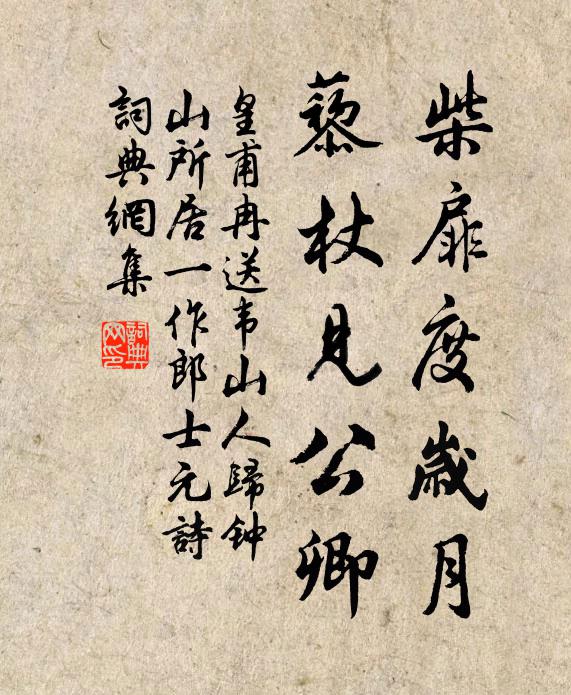 柴扉度歲月
藜杖見公卿
皇甫冉送韦山人歸钟
山所居一作郎士元詩
詞典網集
詞典网印